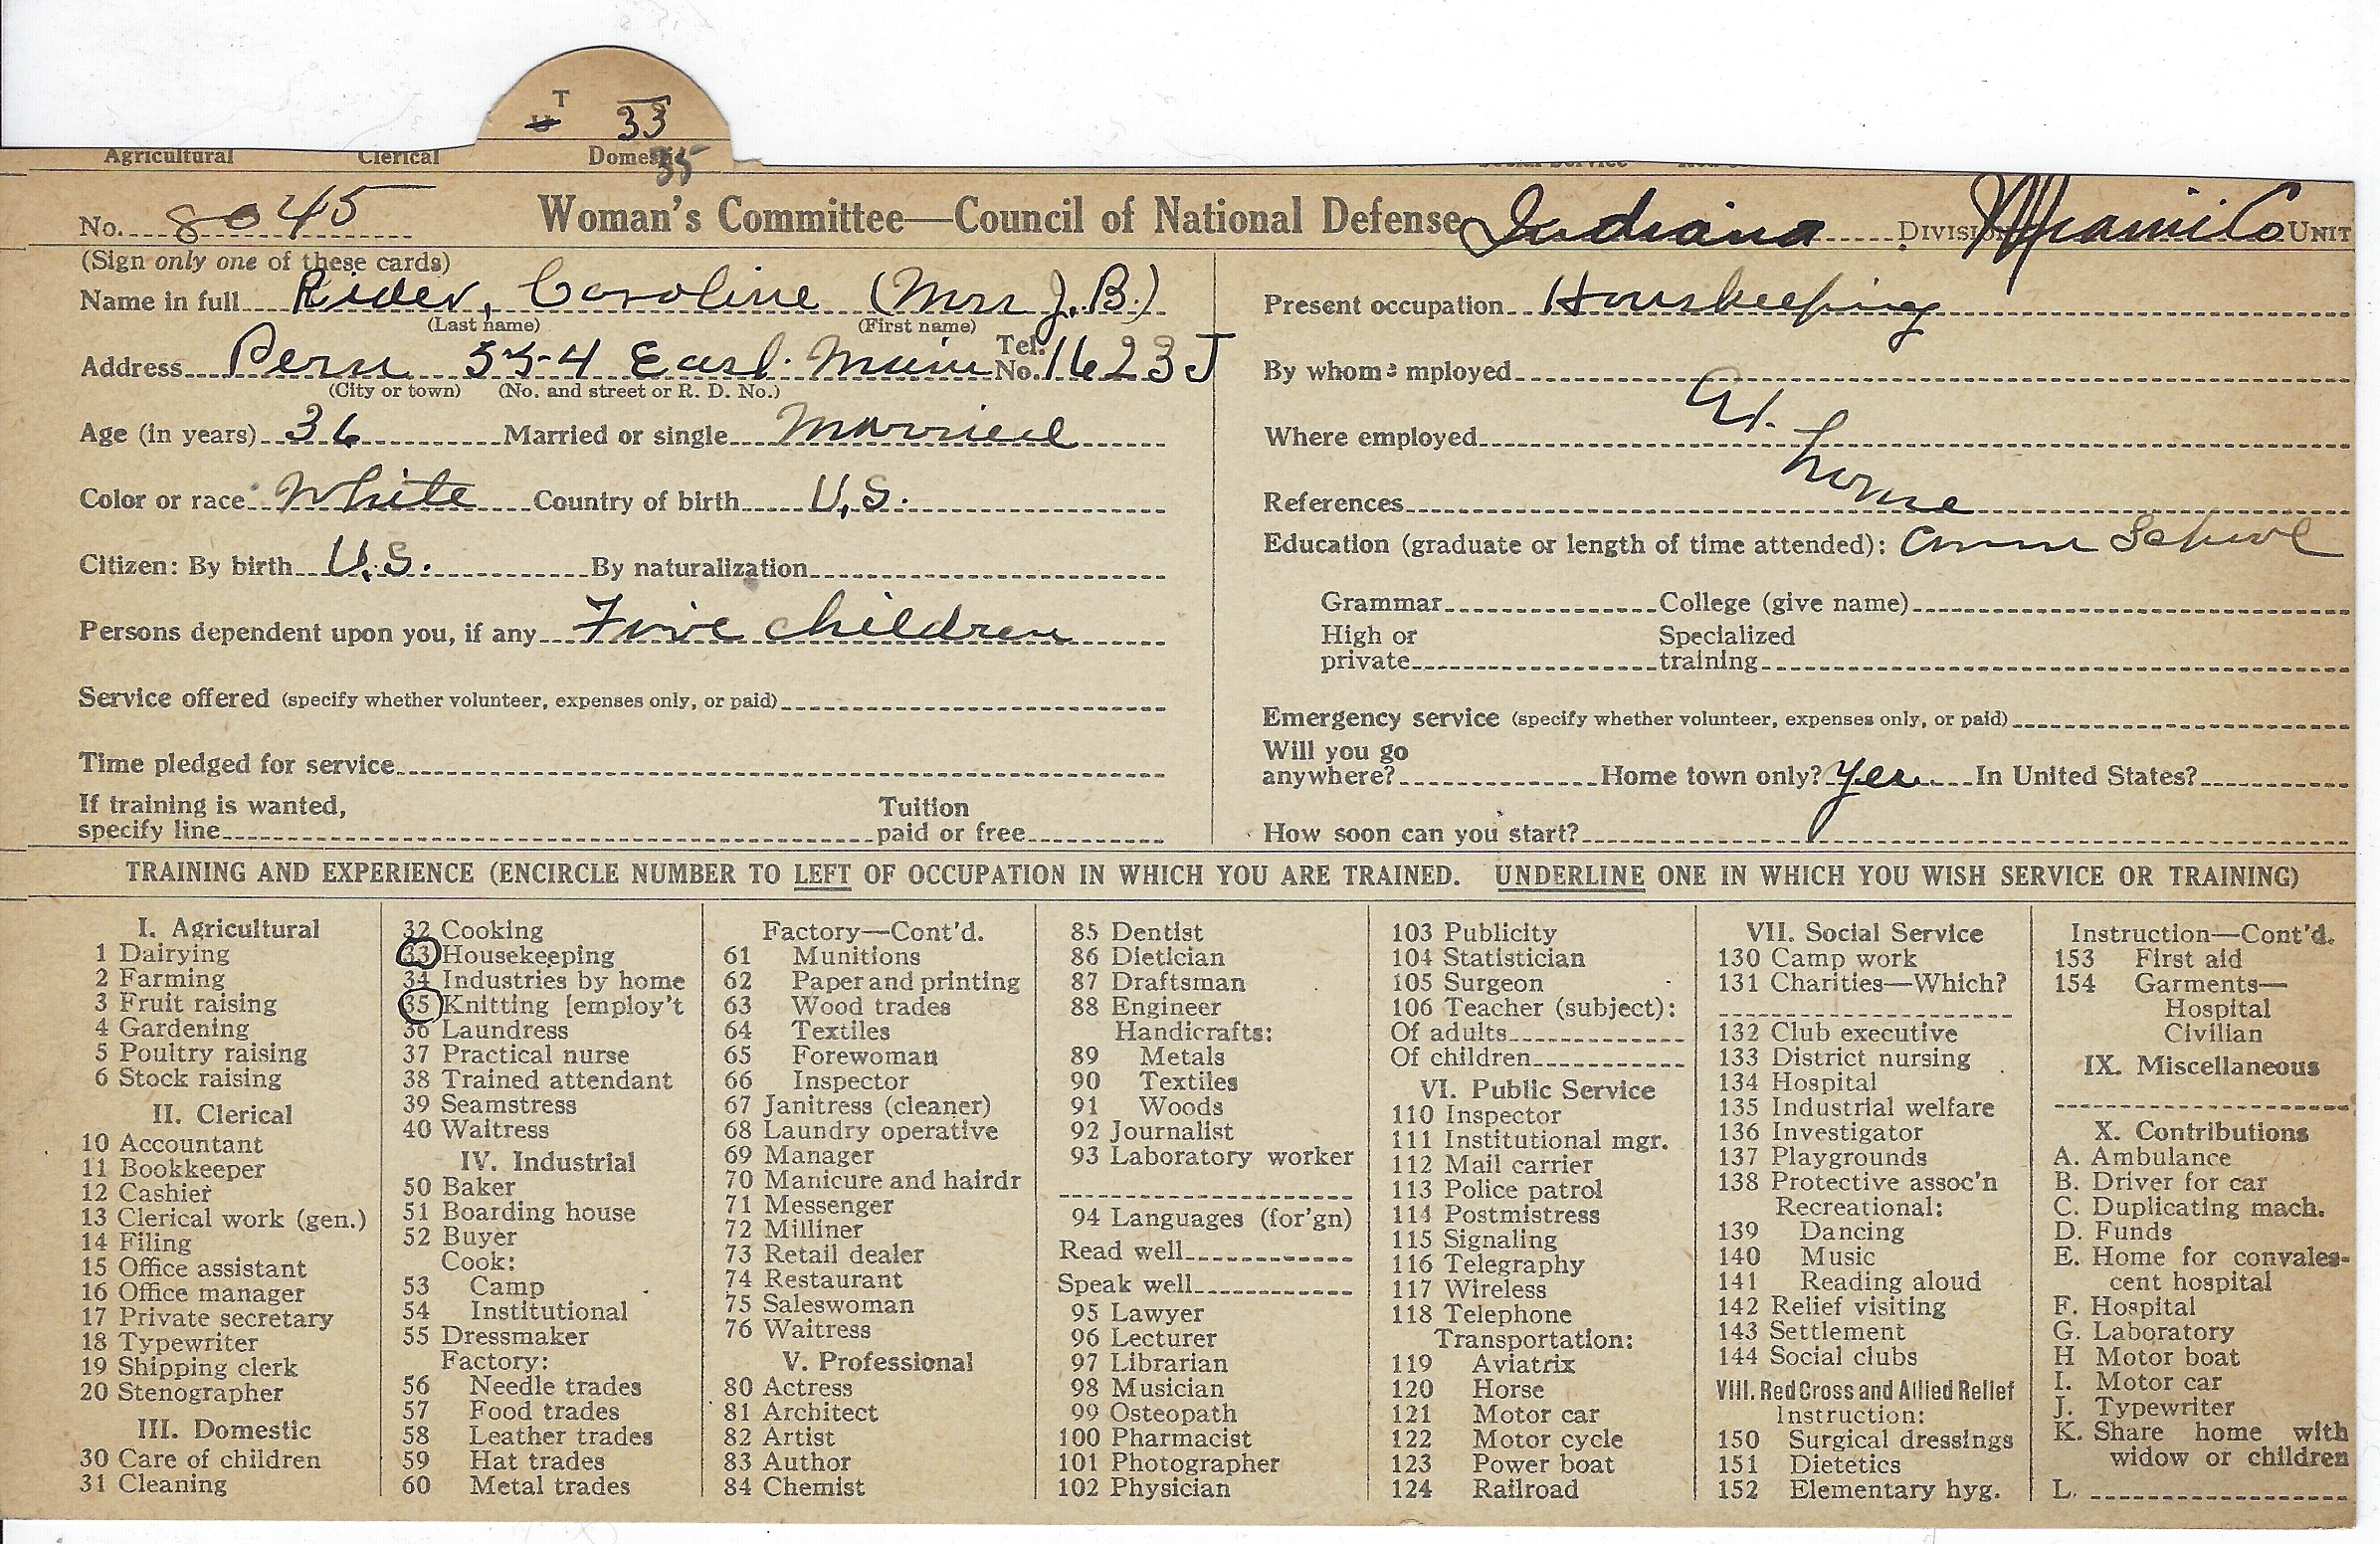 T
33
Agricultural Clerical Domestic
35
No. 8045 Woman's Committee—Council of National Defense Indiana Division Miami Co Unit
(Sign only one of these cards)
Name in full Rider, Caroline (Mrs J.B.)
(Last name) (First name)
Address Peru 554 East Main Tel. No. 1623J
(City or town) (No. and street or R. D. No.)
Age (in years) 36 Married or single Married
Color or race White Country of birth U.S.
Citizen: By birth U.S. By naturalization
Persons dependent upon you, if any Five children
Service offered (specify whether volunteer, expenses only, or paid)
Time pledged for service
If training is wanted, Tuition
specify line paid or free
Present occupation Houskeeping
By whom employed
Where employed At home
References
Education (graduate or length of time attended): School
Grammar College (give name)
High or Specialized
private training
Emergency service (specify whether volunteer, expenses only, or paid)
Will you go
anywhere? Home town only? Yes In United States?
How soon can you start?
TRAINING AND EXPERIENCE (ENCIRCLE NUMBER TO LEFT OF OCCUPATION IN WHICH YOU ARE TRAINED. UNDERLINE ONE IN WHICH YOU WISH SERVICE OR TRAINING)
I. Agricultural
1 Dairying
2 Farming
3 Fruit raising
4 Gardening
5 Poultry raising
6 Stock raising
II. Clerical
10 Accountant
11 Bookkeeper
12 Cashier
13 Clerical work (gen.)
14 Filing
15 Office assistant
16 Office manager
17 Private secretary
18 Typewriter
19 Shipping clerk
20 Stenographer
III. Domestic
30 Care of children
31 Cleaning
32 Cooking
33 Housekeeping
34 Industries by home
35 Knitting [employ't
36 Laundress
37 Practical nurse
38 Trained attendant
39 Seamstress
40 Waitress
IV. Industrial
50 Baker
51 Boarding house
52 Buyer
Cook:
53 Camp
54 Institutional
55 Dressmaker
Factory:
56 Needle trades
57 Food trades
58 Leather trades
59 Hat trades
60 Metal trades
Factory—Cont'd.
61 Munitions
62 Paper and printing
63 Wood trades
64 Textiles
65 Forewoman
66 Inspector
67 Janitress (cleaner)
68 Laundry operative
69 Manager
70 Manicure and hairdr
71 Messenger
72 Milliner
73 Retail dealer
74 Restaurant
75 Saleswoman
76 Waitress
V. Professional
80 Actress
81 Architect
82 Artist
83 Author
84 Chemist
85 Dentist
86 Dietician
87 Draftsman
88 Engineer
Handicrafts:
89 Metals
90 Textiles
91 Woods
92 Journalist
93 Laboratory worker
94 Languages (for'gn)
Read well
Speak well
95 Lawyer
96 Lecturer
97 Librarian
98 Musician
99 Osteopath
100 Pharmacist
101 Photographer
102 Physician
103 Publicity
104 Statistician
105 Surgeon
106 Teacher (subject):
Of adults
Of children
VI. Public Service
110 Inspector
111 Institutional mgr.
112 Mail carrier
113 Police patrol
114 Postmistress
115 Signaling
116 Telegraphy
117 Wireless
118 Telephone
Transportation:
119 Aviatrix
120 Horse
121 Motor car
122 Motor cycle
123 Power boat
124 Railroad
VII. Social Service
130 Camp work
131 Charities—Which?
132 Club executive
133 District nursing
134 Hospital
135 Industrial welfare
136 Investigator
137 Playgrounds
138 Protective assoc'n
Recreational:
139 Dancing
140 Music
141 Reading aloud
142 Relief visiting
143 Settlement
144 Social clubs
VIII. Red Cross and Allied Relief
Instruction:
150 Surgical dressings
151 Dietetics
152 Elementary hyg.
Instruction—Cont'd.
153 First aid
154 Garments—
Hospital
Civilian
IX. Miscellaneous
X. Contributions
A. Ambulance
B. Driver for car
C. Duplicating mach.
D. Funds
E. Home for convales-
cent hospital
F. Hospital
G. Laboratory
H Motor boat
I. Motor car
J. Typewriter
K. Share home with
widow or children
L.